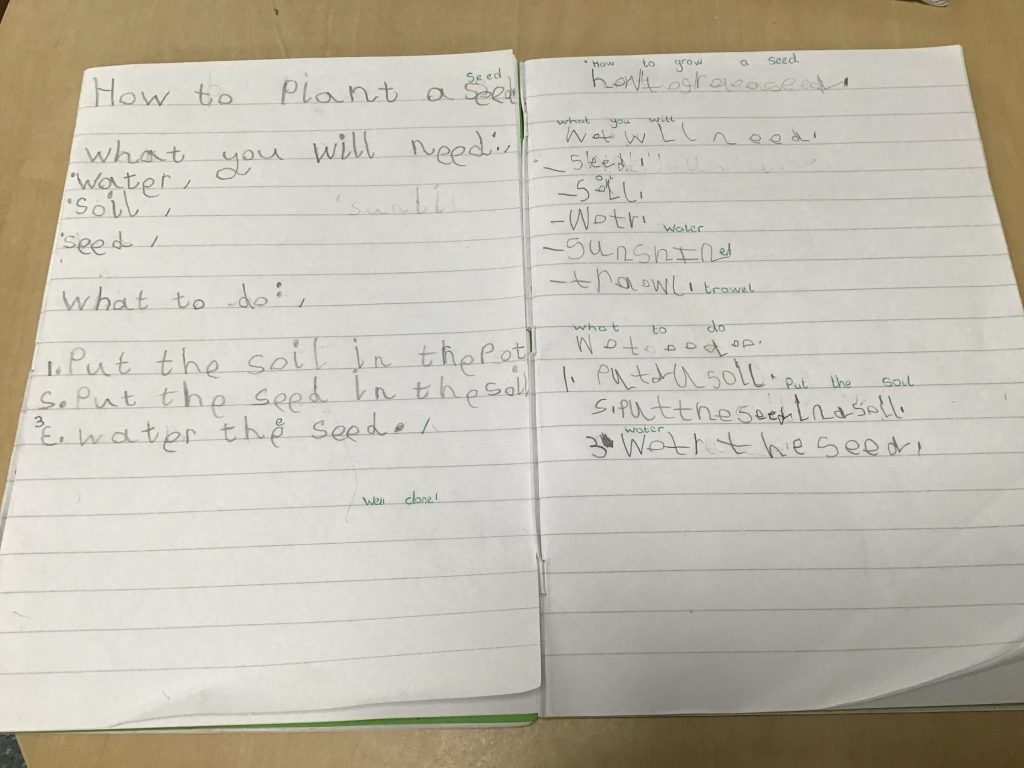 seed
How to Plant a seed
what you will need:,
water,
soil,
seed,
What to do:,
1. Put the soil in the Pot
S. Put the seed in the soil
3
e
£. water the seed. ,
Well done!
How to grow a seed
what you will
Wot will need.
- Seed
- Soil.
- Wotr. water
- Sunshine
- traowl. trowel
what to do
1. Put the soil
S. put the seed in a soil.
water
3 Wotr the seed.